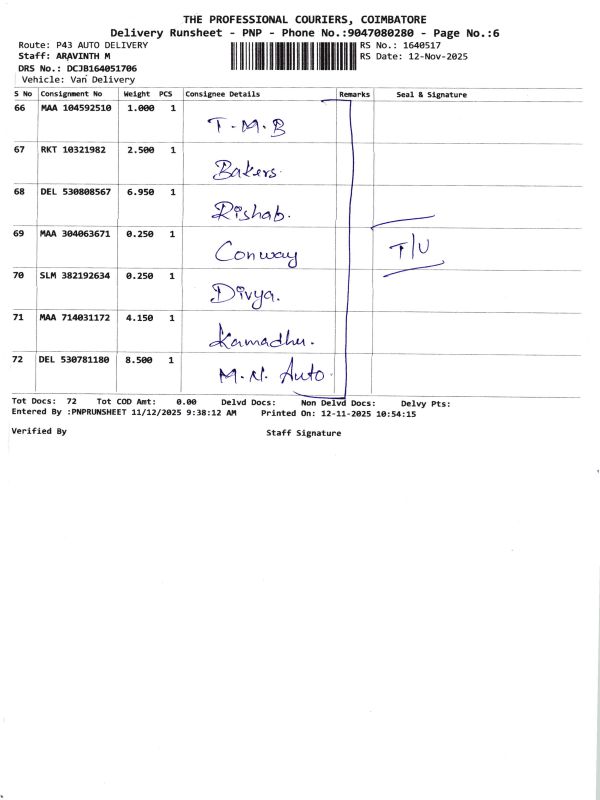 THE PROFESSIONAL COURIERS, COIMBATORE
Delivery Runsheet - PNP - Phone No.:9047080280 - Page No.:6
Route: P43 AUTO DELIVERY RS No.: 1640517
Staff: ARAVINTH M RS Date: 12-Nov-2025
DRS No.: DCJB164051706
Vehicle: Van Delivery
S No Consignment No Weight PCS Consignee Details Remarks Seal & Signature
66 MAA 104592510 1.000 1
T.M.B
67 RKT 10321982 2.500 1
Bakers.
68 DEL 530808567 6.950 1
Rishab.
69 MAA 304063671 0.250 1
Conway T/U
70 SLM 382192634 0.250 1
Divya.
71 MAA 714031172 4.150 1
Kamadhu.
72 DEL 530781180 8.500 1
M.N. Auto.
Tot Docs: 72 Tot COD Amt: 0.00 Delvd Docs: Non Delvd Docs: Delvy Pts:
Entered By :PNPRUNSHEET 11/12/2025 9:38:12 AM Printed On: 12-11-2025 10:54:15
Verified By Staff Signature